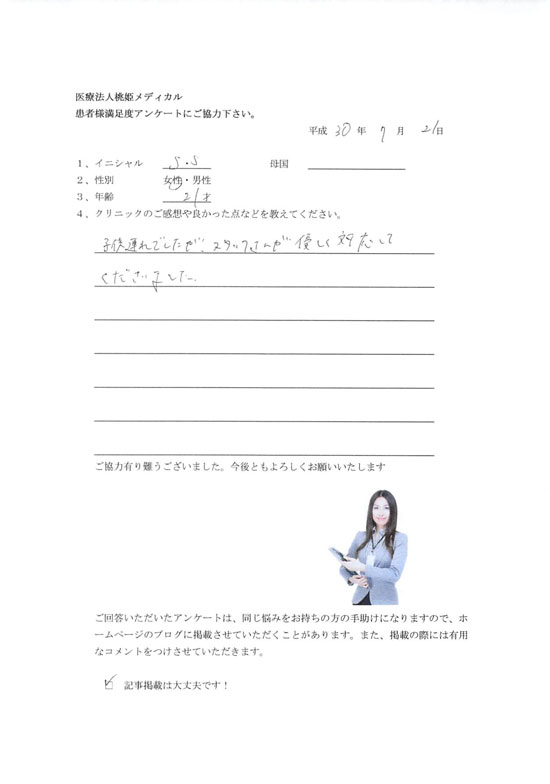 医療法人桃姫メディカル
患者様満足度アンケートにご協力下さい。
平成 30 年 7 月 21日
1、イニシャル S.S 母国
2、性別 女性・男性
3、年齢 21才
4、クリニックのご感想や良かった点などを教えてください。
子供連れでしたが、スタッフさんが優しく対応して
くださいました。
ご協力有り難うございました。今後ともよろしくお願いいたします
ご回答いただいたアンケートは、同じ悩みをお持ちの方の手助けになりますので、ホ
ームページのブログに掲載させていただくことがあります。また、掲載の際には有用
なコメントをつけさせていただきます。
記事掲載は大丈夫です！